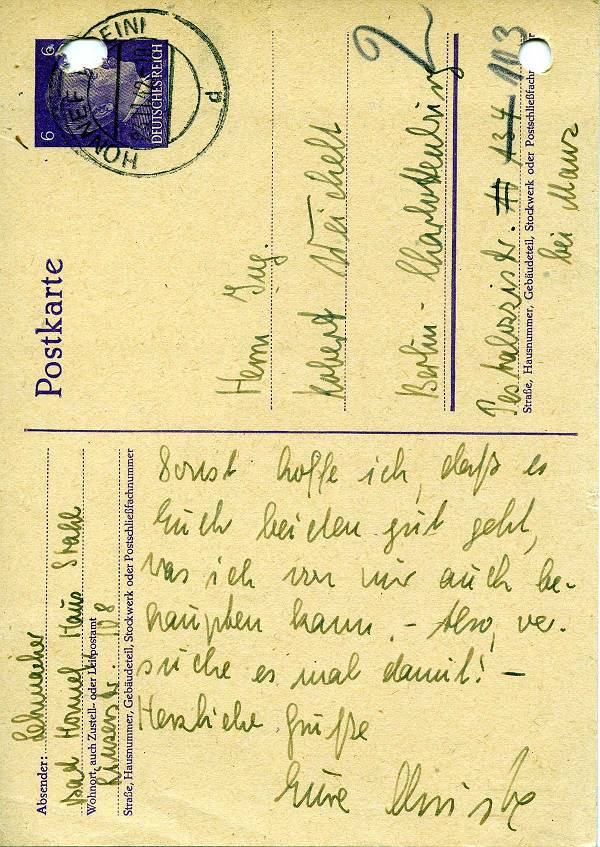 Postkarte
6 6
DEUTSCHES REICH
HONNEF
d
2
Herrn Ing.
Robert Weichelt
Berlin-Charlottenburg
Pestalozzistr. 134 103
Straße, Hausnummer, Gebäudeteil, Stockwerk oder Postschließfachnummer
bei Manz
Absender: Schumacher
Bad Honnef Haus Strahl
Wohnort, auch Zustell- oder Leitpostamt
108
Straße, Hausnummer, Gebäudeteil, Stockwerk oder Postschließfachnummer
Sonst hoffe ich, daß es
Euch beiden gut geht,
was ich von mir auch be-
haupten kann. - Also, ver-
suche es mal damit! -
Herzliche Grüße
Eure